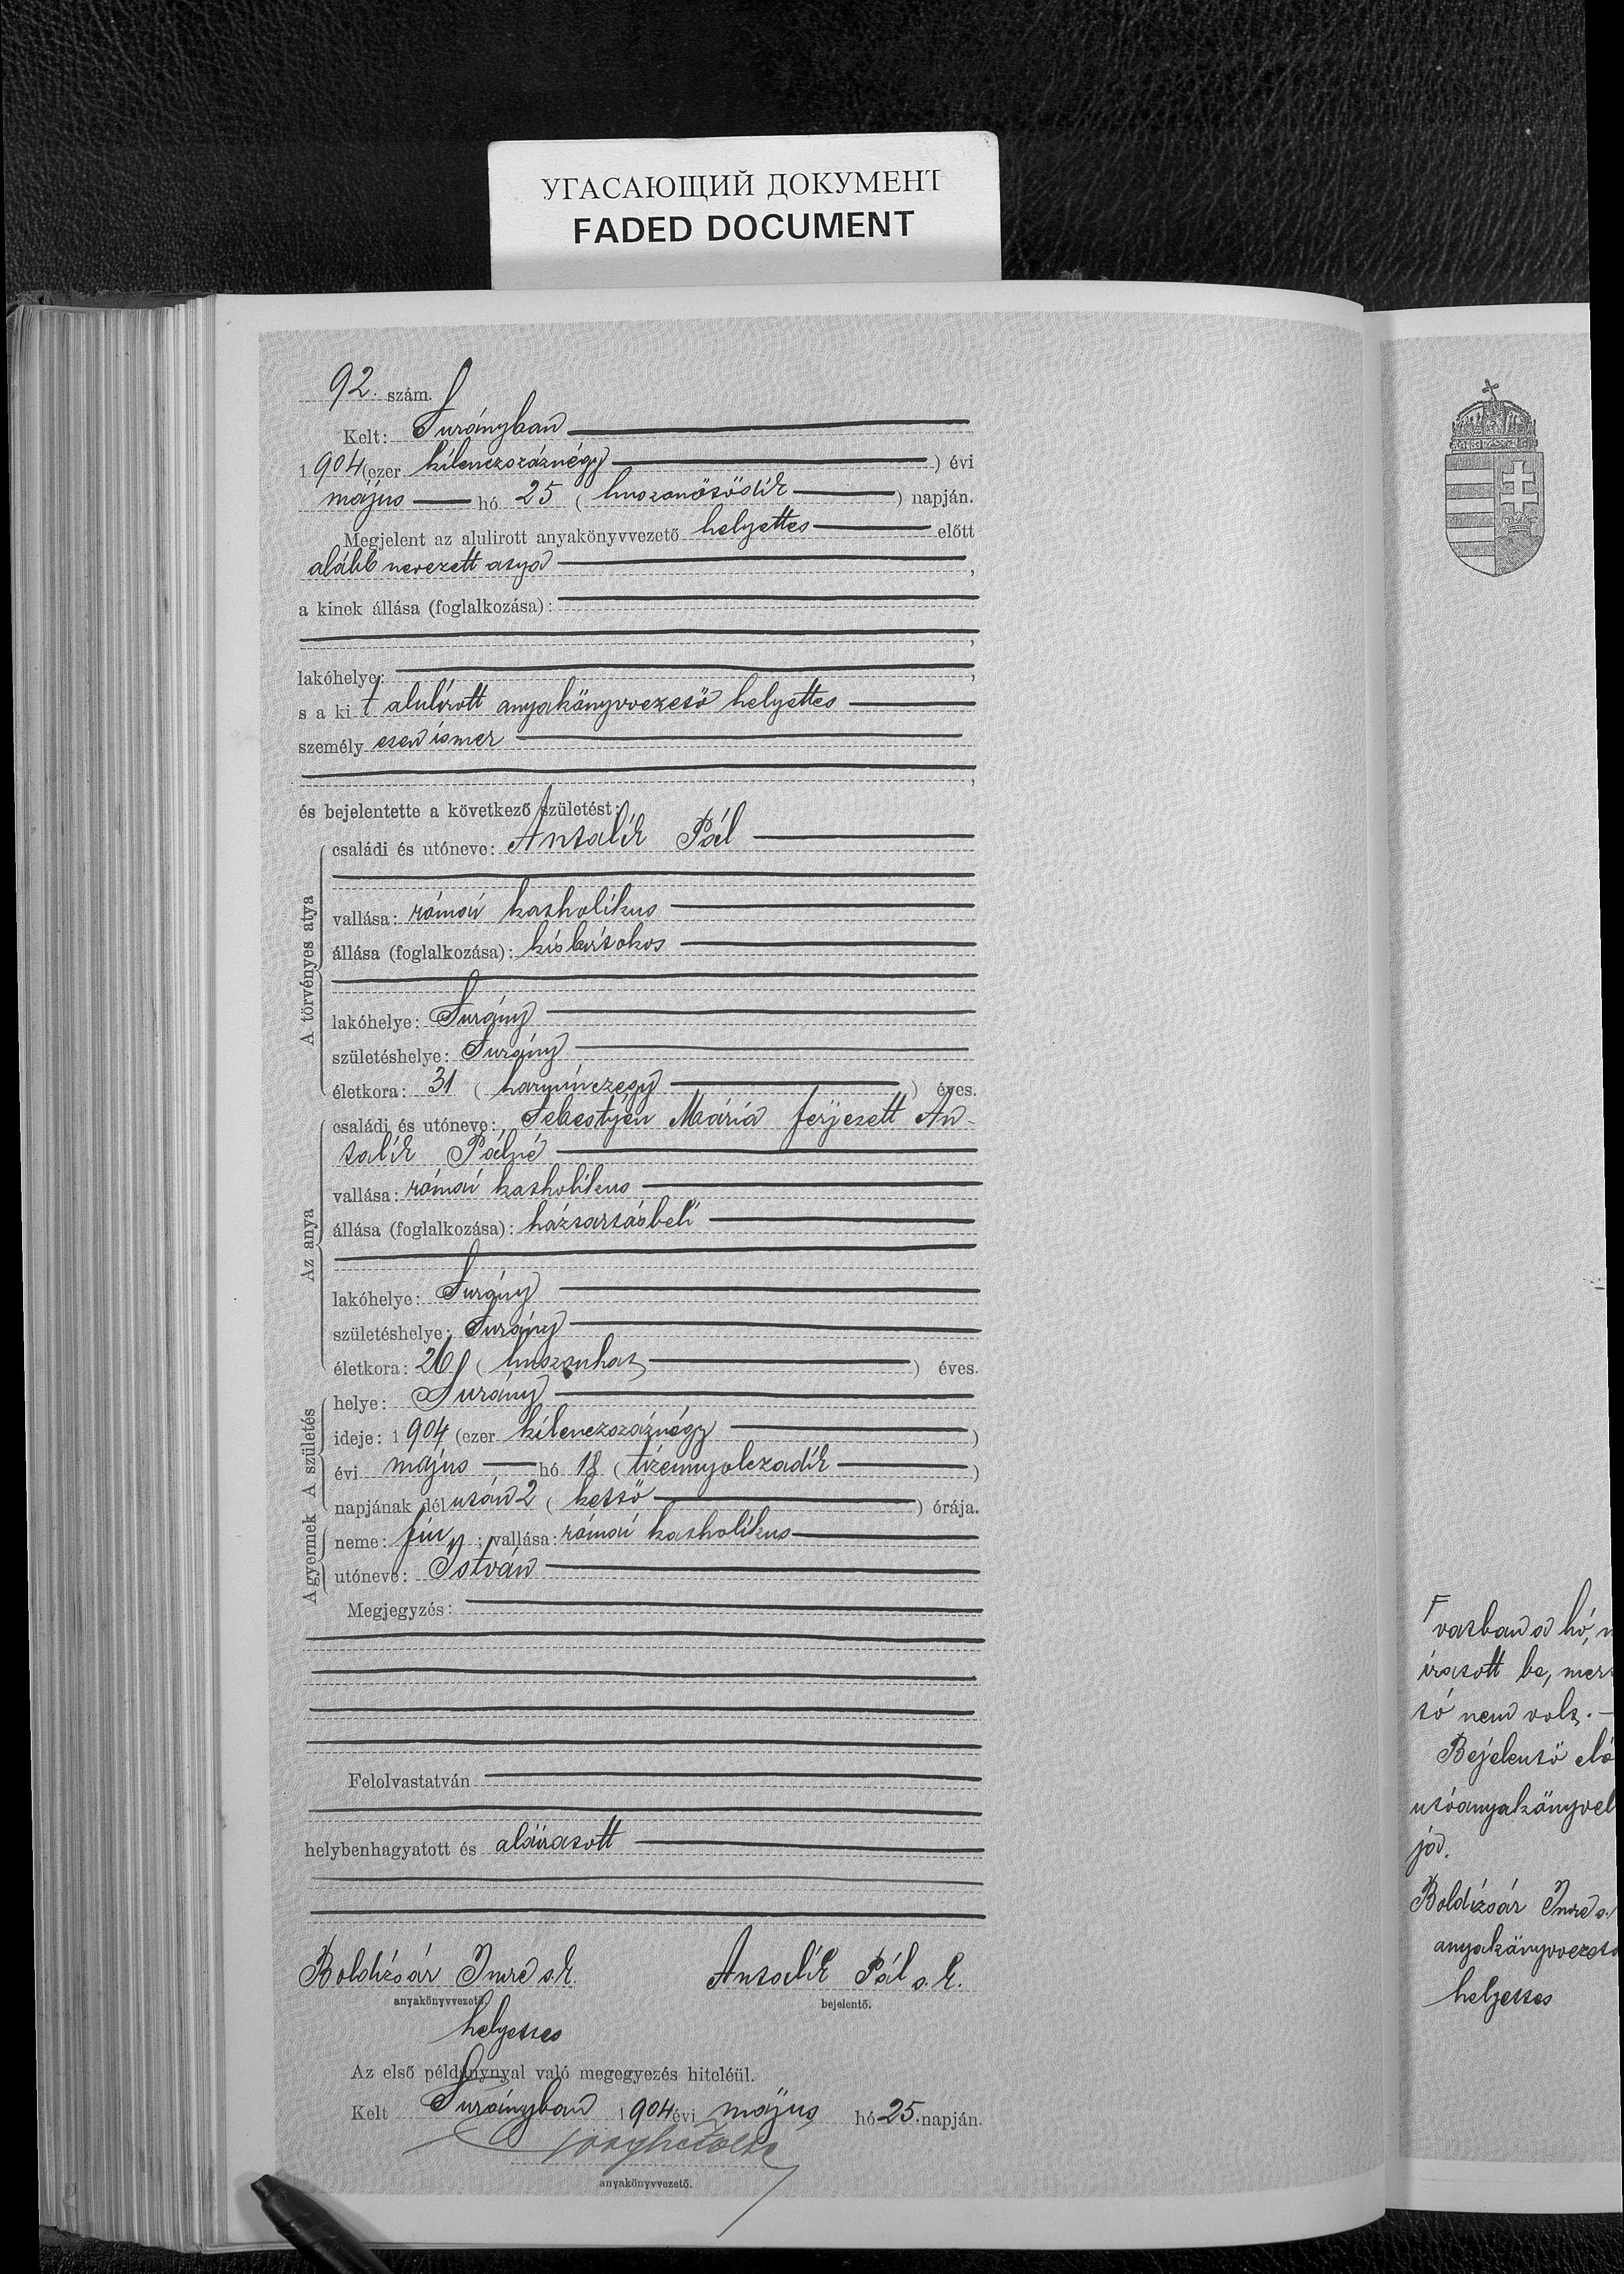 УГАСАЮЩИЙ ДОКУМЕНТ
FADED DOCUMENT
92. szám.
Kelt: Surányban
1904 (ezer kilenczszáznégy) évi
május hó 25 (huszonötödik) napján.
Megjelent az alulirott anyakönyvvezető helyettes előtt
alább nevezett atya,
a kinek állása (foglalkozása):
,
lakóhelye: ,
s a kit alulírott anyakönyvvezető helyettes
személyesen ismer
,
és bejelentette a következő születést:
A törvényes atya
családi és utóneve: Antalík Pál
vallása: római katholikus
állása (foglalkozása): kisbirtokos
lakóhelye: Surány
születéshelye: Surány
életkora: 31 (harminczegy) éves.
Az anya
családi és utóneve: Sebestyén Mária férjezett An-
talik Pálné
vallása: római katholikus
állása (foglalkozása): háztartásbeli
lakóhelye: Surány
születéshelye: Surány
életkora: 26 (huszonhat) éves.
A születés
helye: Surány
ideje: 1904 (ezer kilenczszáznégy)
évi május hó 18 (tizennyolczadik)
napjának délután 2 (kettő) órája.
A gyermek
neme: fiu; vallása: római katholikus
utóneve: István
Megjegyzés:
Felolvastatván
helybenhagyatott és aláíratott
Boldizsár Imre s.k. Antalik Pál s.k.
anyakönyvvezető. bejelentő.
helyettes
Az első példánynyal való megegyezés hiteléül.
Kelt Surányban 1904 évi május hó 25. napján.
anyakönyvvezető.
vatban a hó,
iratott be, mer
tó nem volt.
Bejelentő elő
utóanyakönyvel
ja.
Boldizsár Imre s.
anyakönyvvezető
helyettes